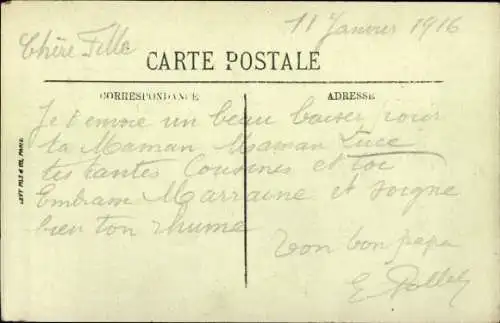 11 Janvier 1916
Chère Fille
CARTE POSTALE
CORRESPONDANCE
ADRESSE
Je t'envoie un beau baiser pour
ta Maman Maman Luce
tes tantes Cousines et toi
Embrasse Marraine et soigne
bien ton rhume
Ton bon papa
E
LEVY FILS & CIE, PARIS